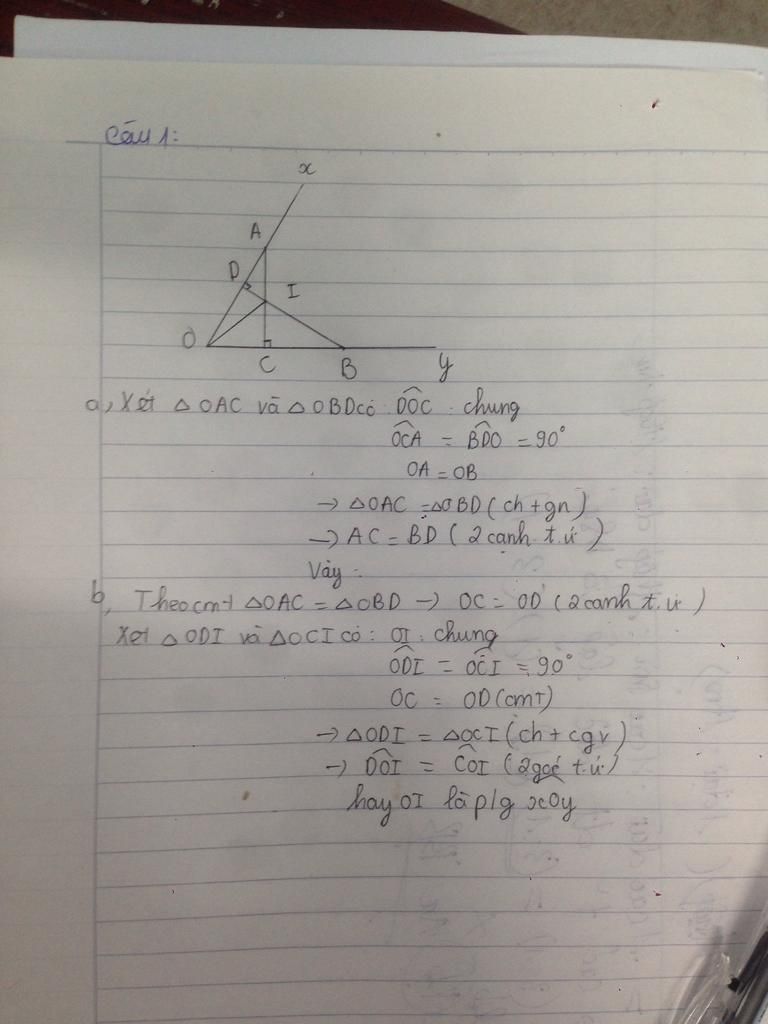 Câu 1:
x
A
D
I
O
C
B
y
a, Xét △OAC và △OBD có: D̂OC: chung
ÔCA = B̂DO = 90°
OA = OB
→ △OAC = △OBD (ch + gn)
→ AC = BD (2 cạnh t.ư)
Vậy:
b, Theo cmt △OAC = △OBD → OC = OD (2 cạnh t.ư)
Xét △ODI và △OCI có: OI: chung
ÔDI = ÔCI = 90°
OC = OD (cmt)
→ △ODI = △OCI (ch + cgv)
→ D̂OI = ĈOI (2 góc t.ư)
hay OI là p/g xÔy